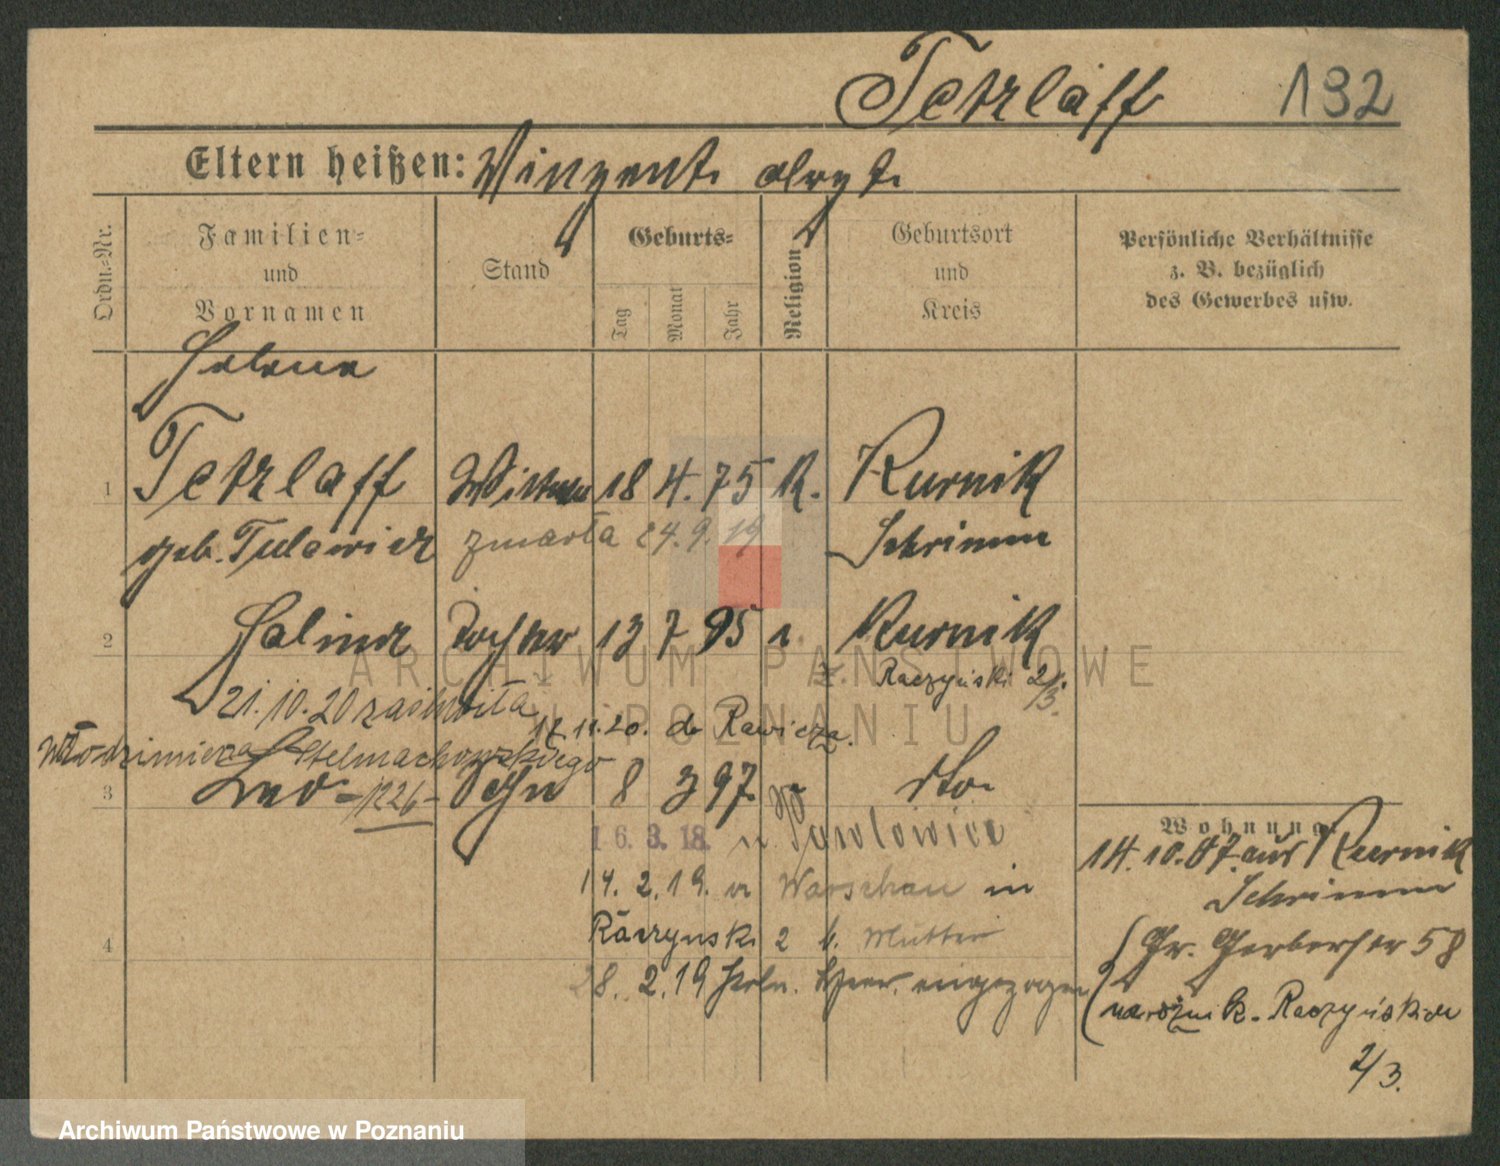 Tetzlaff 192
Eltern heißen: Winzent.
Ordn.-Nr.
Familien-
und
Vornamen
Stand
Geburts-
Tag
Monat
Jahr
Religion
Geburtsort
und
Kreis
Persönliche Verhältnisse
z. B. bezüglich
des Gewerbes usw.
Helene
1 Tetzlaff Witwe 18 4. 75 K. Kurnik
geb. Tulawicz zmarła 24.9.19 Schrimm
2 Halina Tochter 13 7 95 Kurnik
Raczyński 2/3.
21.10.20 zaślubiła
17 11.20. do Rawicza.
Włodzimierza Stelmachowskiego
3 Leo - 1226 - Sohn 8 3 97. dto.
16. 3. 18. n Pawlowice
14. 2. 19. v Warschau in
Raczynski 2 b. Mutter
4
28. 2. 19 Poln. Heer. eingezogen
Wohnung.
14.10.07. aus Kurnik
Schrimm
Gr. Gerberstr 58
narożnik. Raczyńskich
2/3.
ARCHIWUM PAŃSTWOWE
W POZNANIU
Archiwum Państwowe w Poznaniu